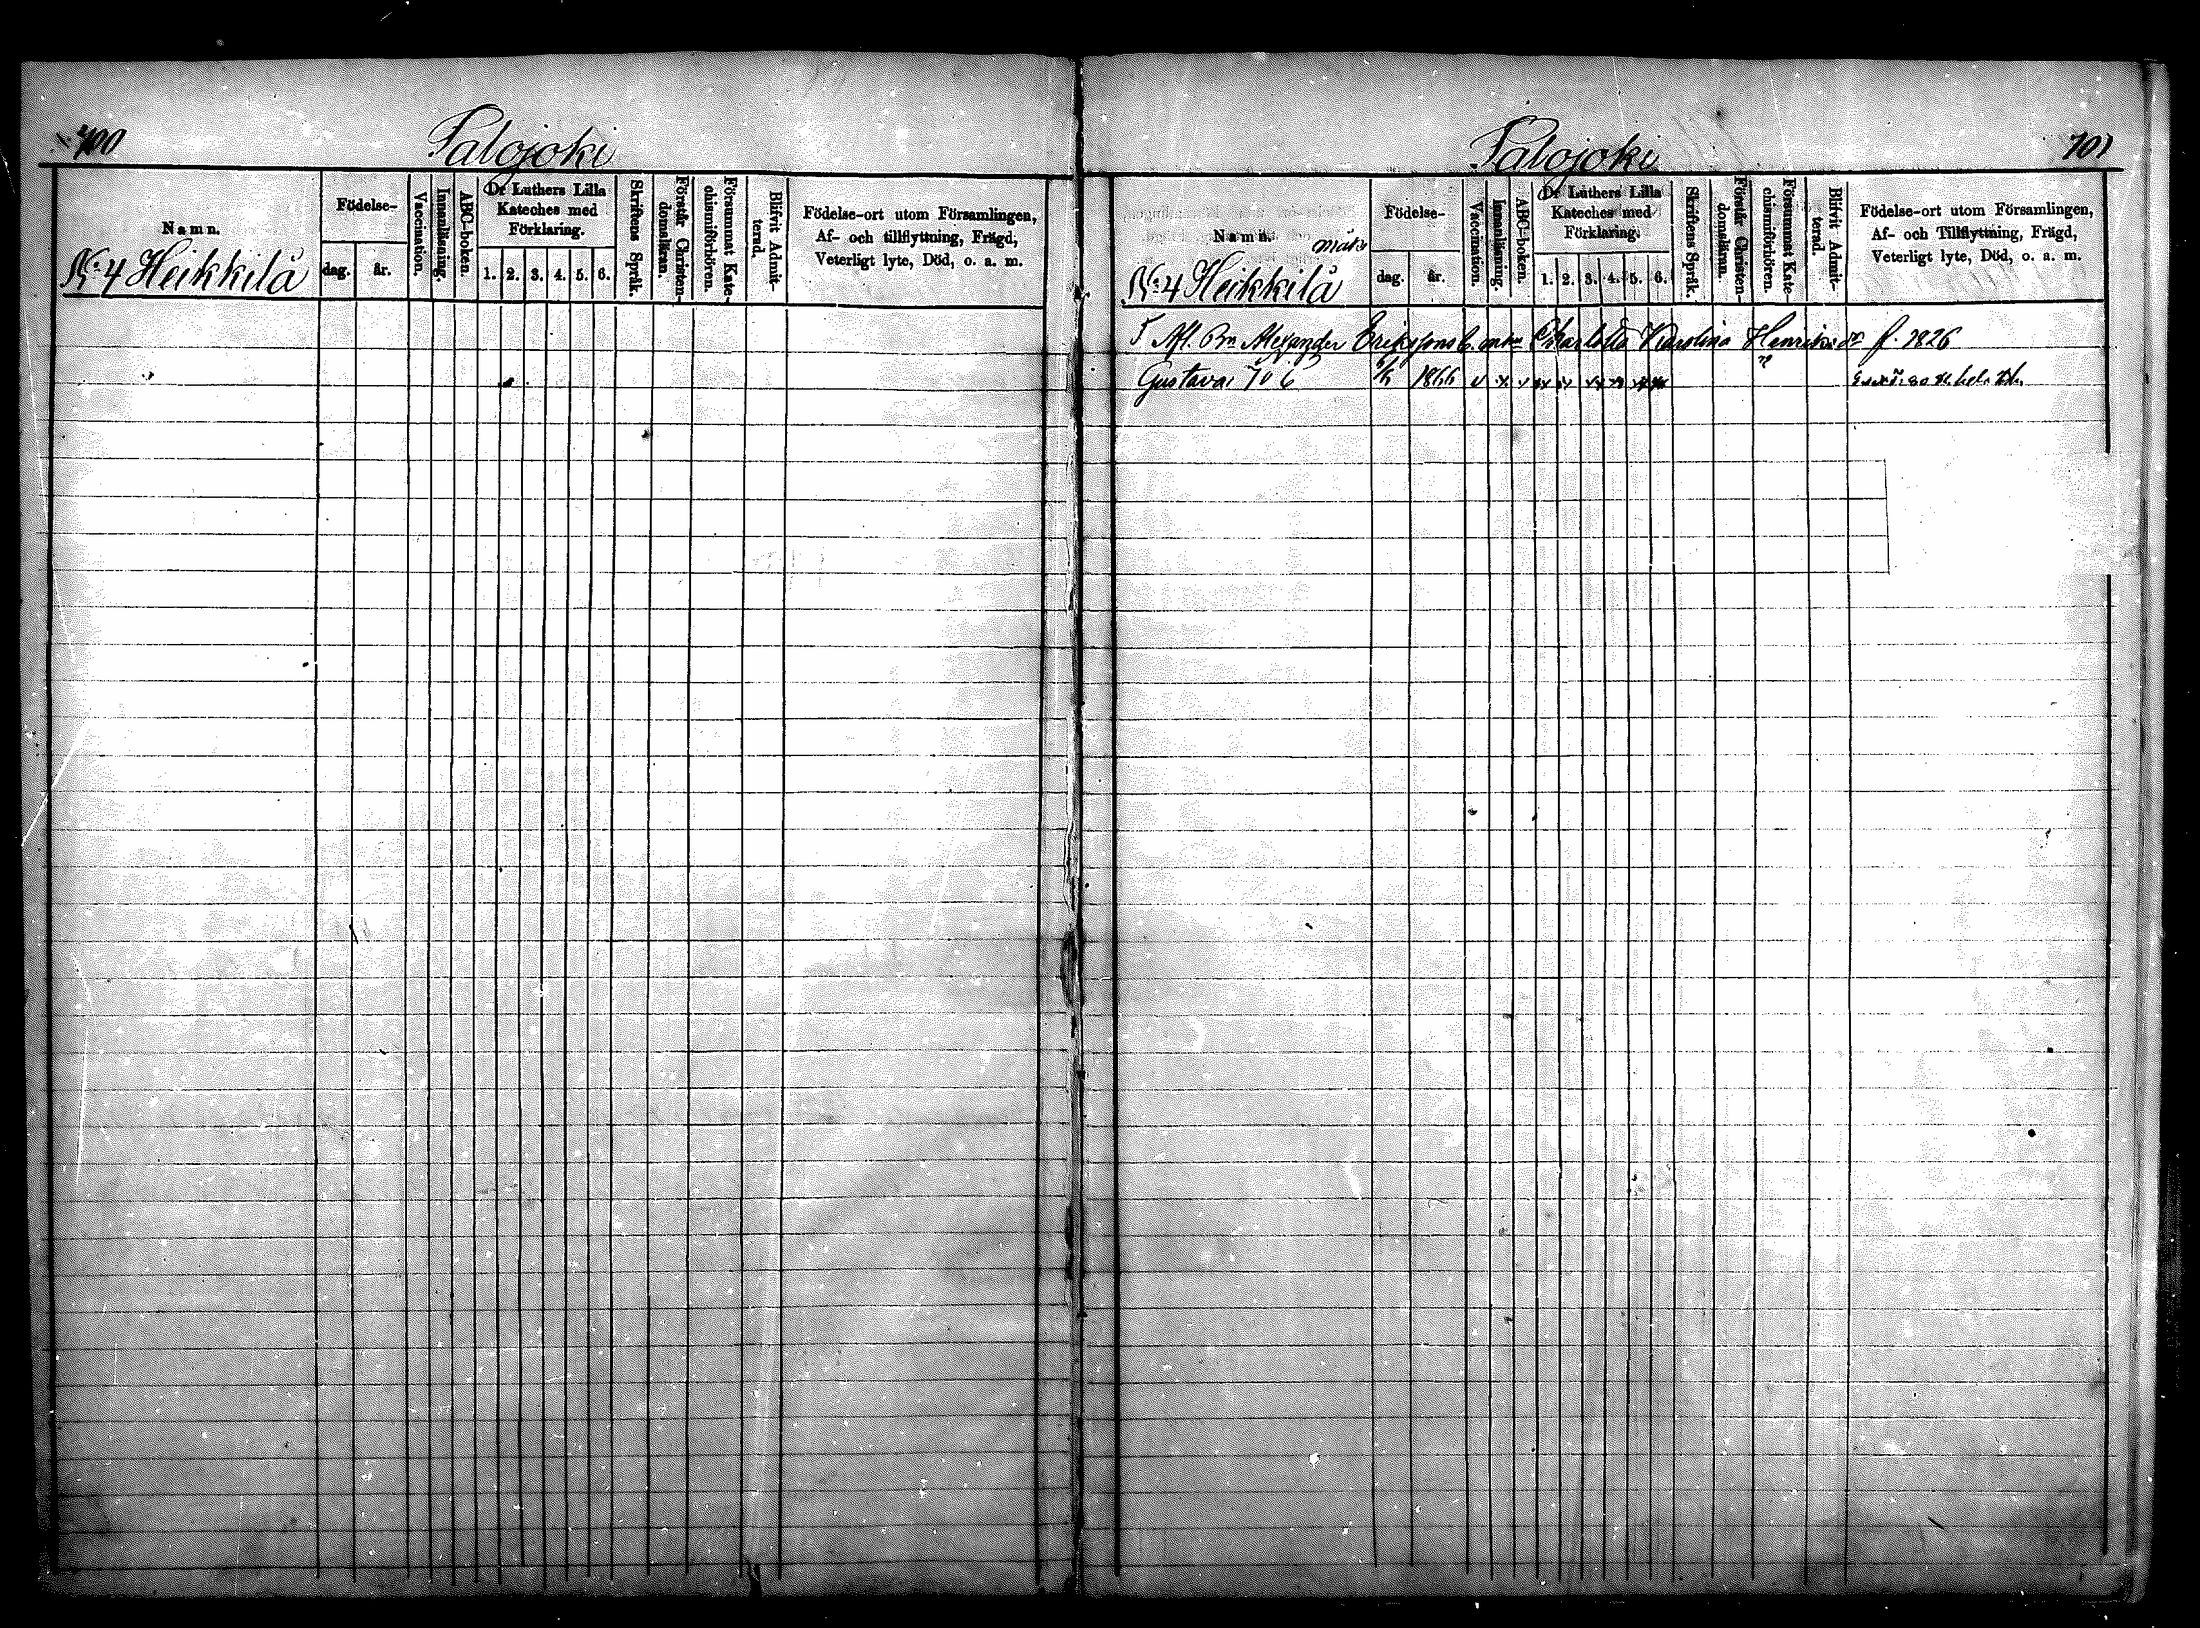 700
Palojoki
Namn.
Födelse-
dag.
år.
Vaccination.
Innanläsning.
ABC-boken.
Dr Luthers Lilla
Kateches med
Förklaring.
1. 2. 3. 4. 5. 6.
Skriftens Språk.
Förstår Christen-
domsläran.
Försummat Kate-
chismiförhören.
Blifvit Admit-
terad.
Födelse-ort utom Församlingen,
Af- och tillflyttning, Frägd,
Veterligt lyte, Död, o. a. m.
No 4 Heikkilä
Palojoki
701
Namn.
Födelse-
dag.
år.
Vaccination.
Innanläsning.
ABC-boken.
Dr Luthers Lilla
Kateches med
Förklaring.
1. 2. 3. 4. 5. 6.
Skriftens Språk.
Förstår Christen-
domsläran.
Försummat Kate-
chismiförhören.
Blifvit Admit-
terad.
Födelse-ort utom Församlingen,
Af- och Tillflyttning, Frägd,
Veterligt lyte, Död, o. a. m.
No 4 Heikkilä
Afl. Bn Alexander Erikssons enka Charlotta Karolina Henriksdr f. 1826
Gustava 1866